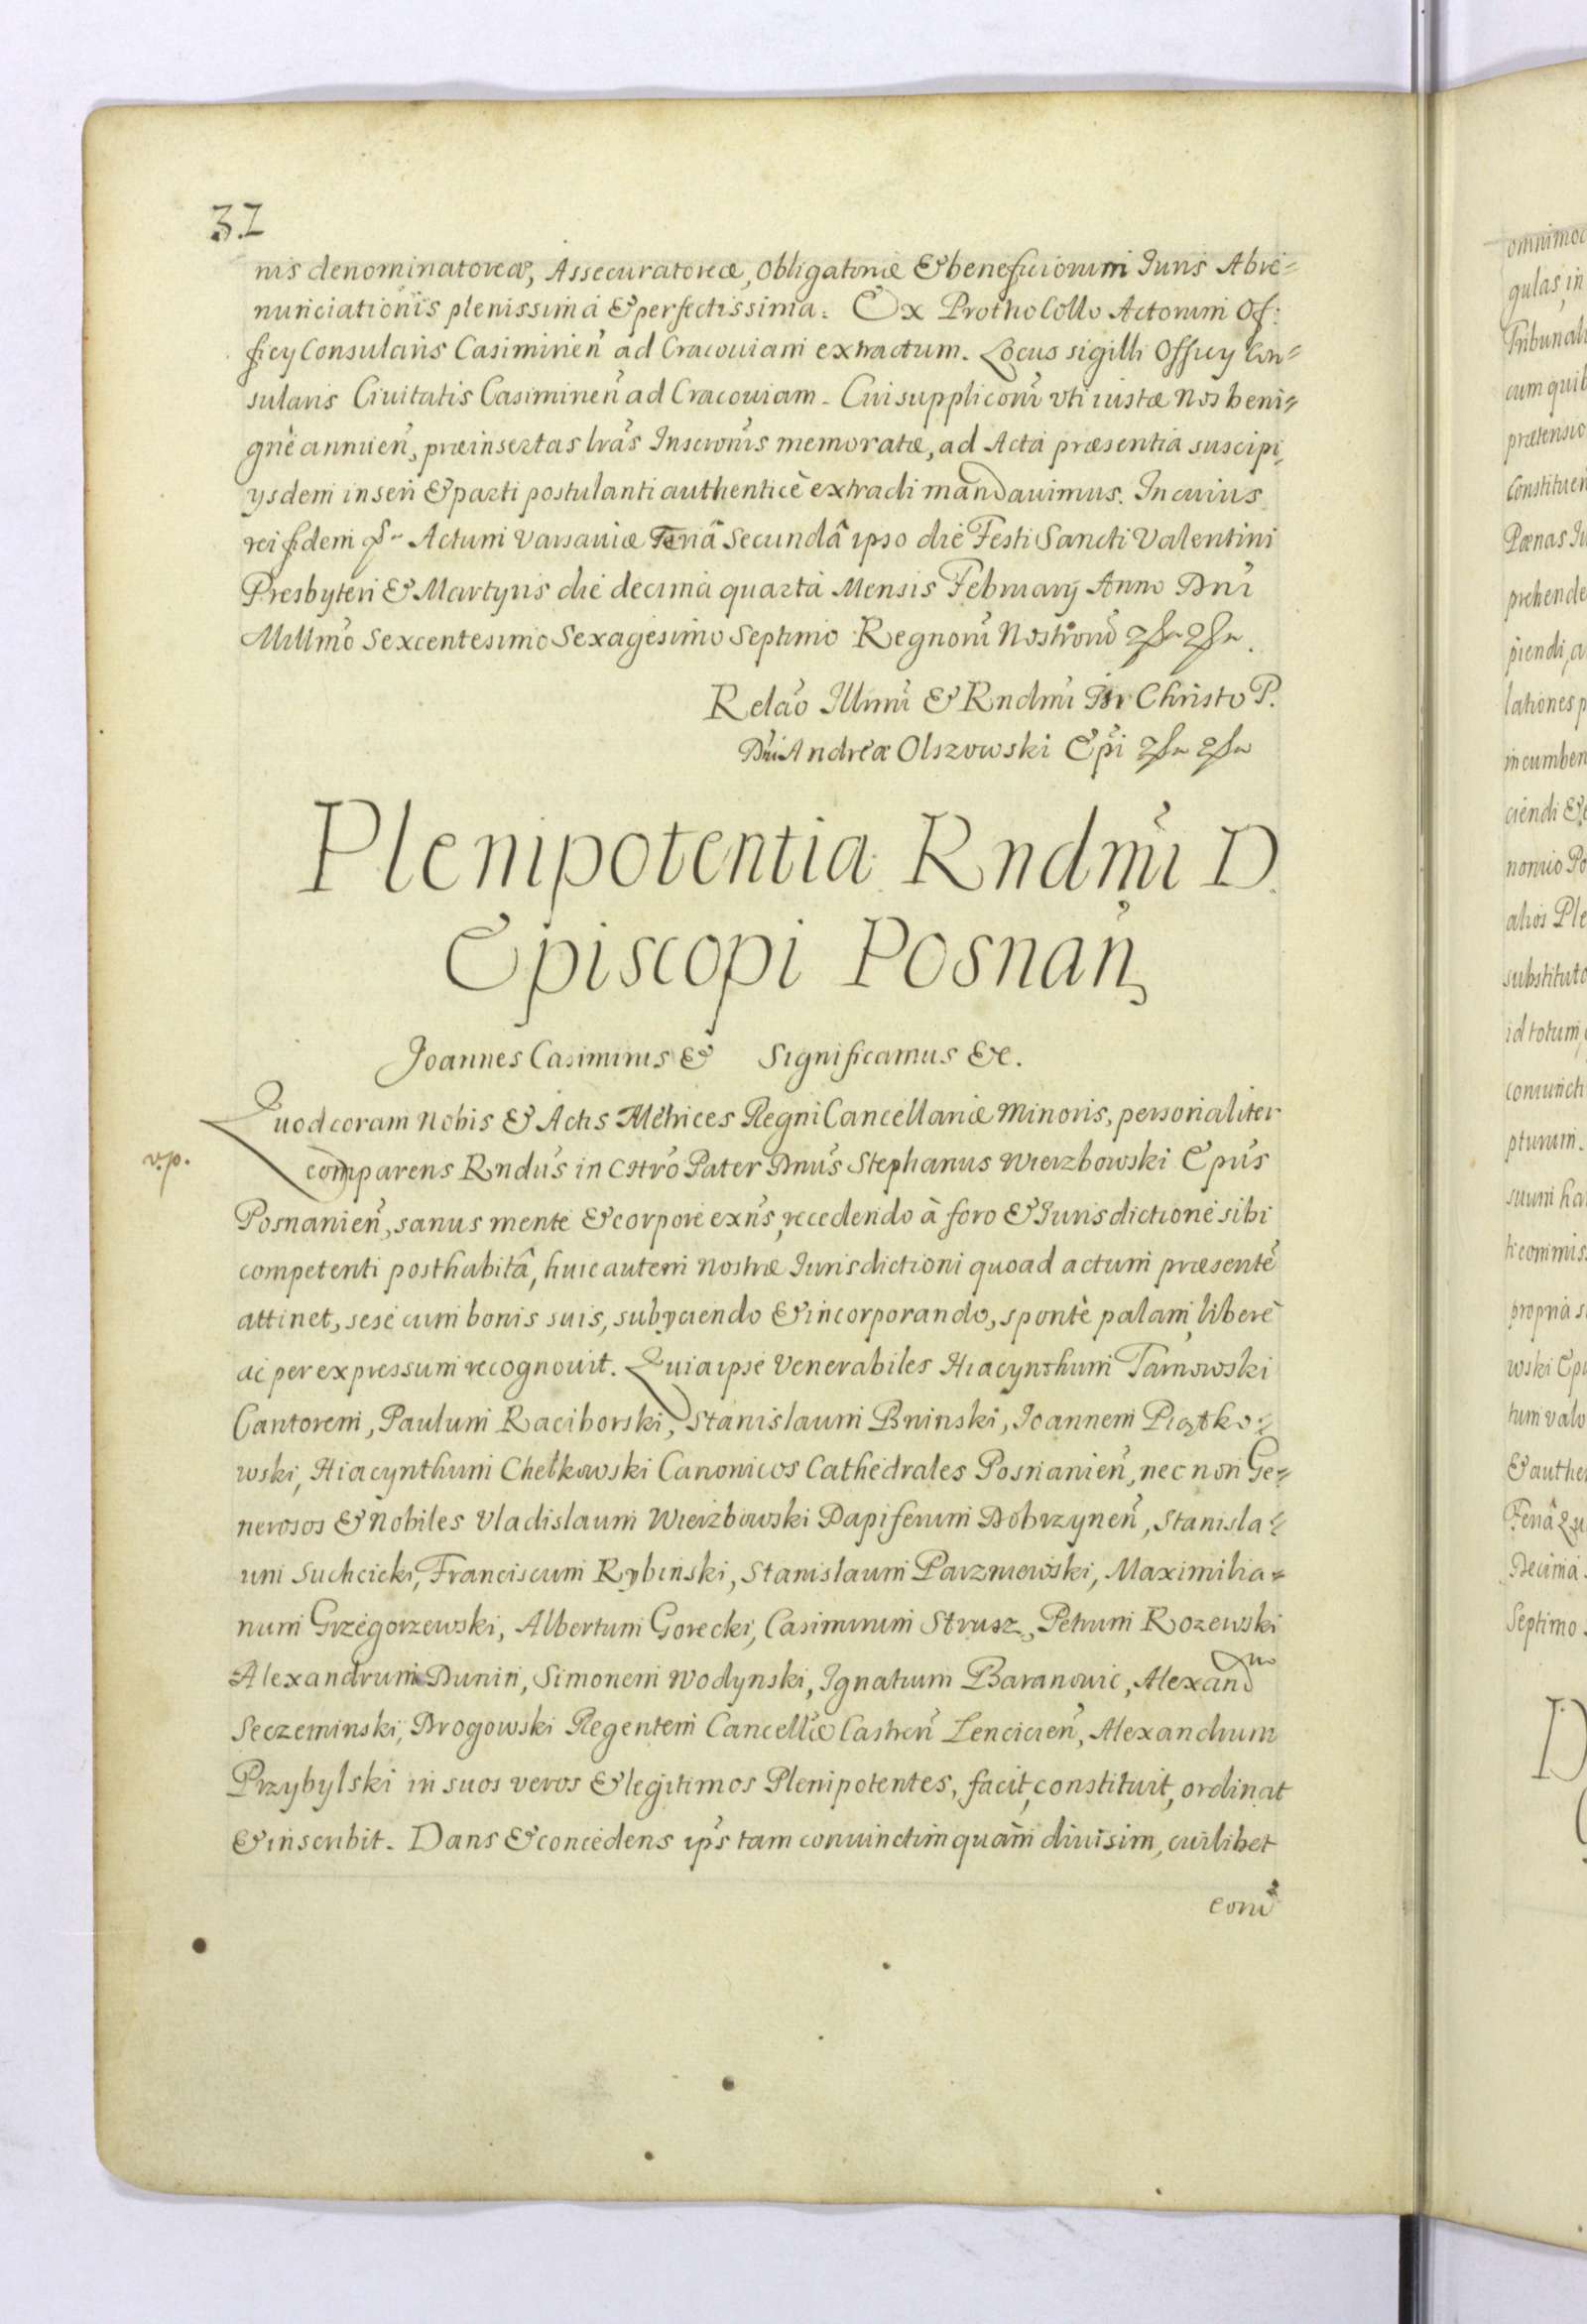 32
nis denominatoreæ, Assecuratoreæ, Obligatoriæ & beneficiorum Iuris Abre=
nunciationis plenissima & perfectissima. Ex Prothocollo Actorum Of:
ficy Consularis Casimirien̄ ad Cracouiam extractum. Locus sigilli Officy Con=
sularis Ciuitatis Casimirien̄ ad Cracouiam. Cui supplicōni vti iustæ Nos beni=
gnè annuen̄, præinsertas lrās Inscrōnis memoratæ, ad Acta præsentia suscipi,
ysdem inseri & parti postulanti authenticè extradi mandauimus. In cuius
rei fidem Actum Varsauiæ Feriâ Secundâ ipso die Festi Sancti Valentini
Presbyteri & Martyris die decima quarta Mensis February Anno Dni
Millmo Sexcentesimo Sexagesimo Septimo Regnorū Nostrorū
Relāo Illmi & Rndmi In Christo P.
Dni Andreæ Olszowski Epi
Plenipotentia Rndmi D.
Episcopi Posnan̄
Joannes Casimirus & Significamus &c.
Quod coram Nobis & Actis Metrices Regni Cancellariæ Minoris, personaliter
v.p.
comparens Rndus in Chro Pater Dnus Stephanus Wierzbowski Epus
Posnanien̄, sanus mente & corpore exns, recedendo à foro & Iurisdictione sibi
competenti posthabitâ, huic autem nostræ Iurisdictioni quoad actum præsentē
attinet, sese cum bonis suis, subyciendo & incorporando, spontè palam, liberè
ac per expressum recognouit. Quia ipse Venerabiles Hiacynthum Tarnowski
Cantorem, Paulum Raciborski, Stanislaum Bninski, Ioannem Piątko=
wski, Hiacynthum Chełkowski Canonicos Cathedrales Posnanien̄, nec non Ge=
nerosos & Nobiles Vladislaum Wierzbowski Dapiferum Dobrzynen̄, Stanisla=
um Suchcicki, Franciscum Rybinski, Stanislaum Parzniewski, Maximilia=
num Grzegorzewski, Albertum Gorecki, Casimirum Strusz, Petrum Rozewski
Alexandrum Dunin, Simonem Wodynski, Ignatium Baranowic, Alexand
Seczeminski, Drogowski Regentem Cancellæ Castren̄ Lencicien̄, Alexandrum
Przybylski in suos veros & legitimos Plenipotentes, facit, constituit, ordinat
& inscribit. Dans & concedens ips tam coniunctim quàm diuisim, cuilibet
eorū